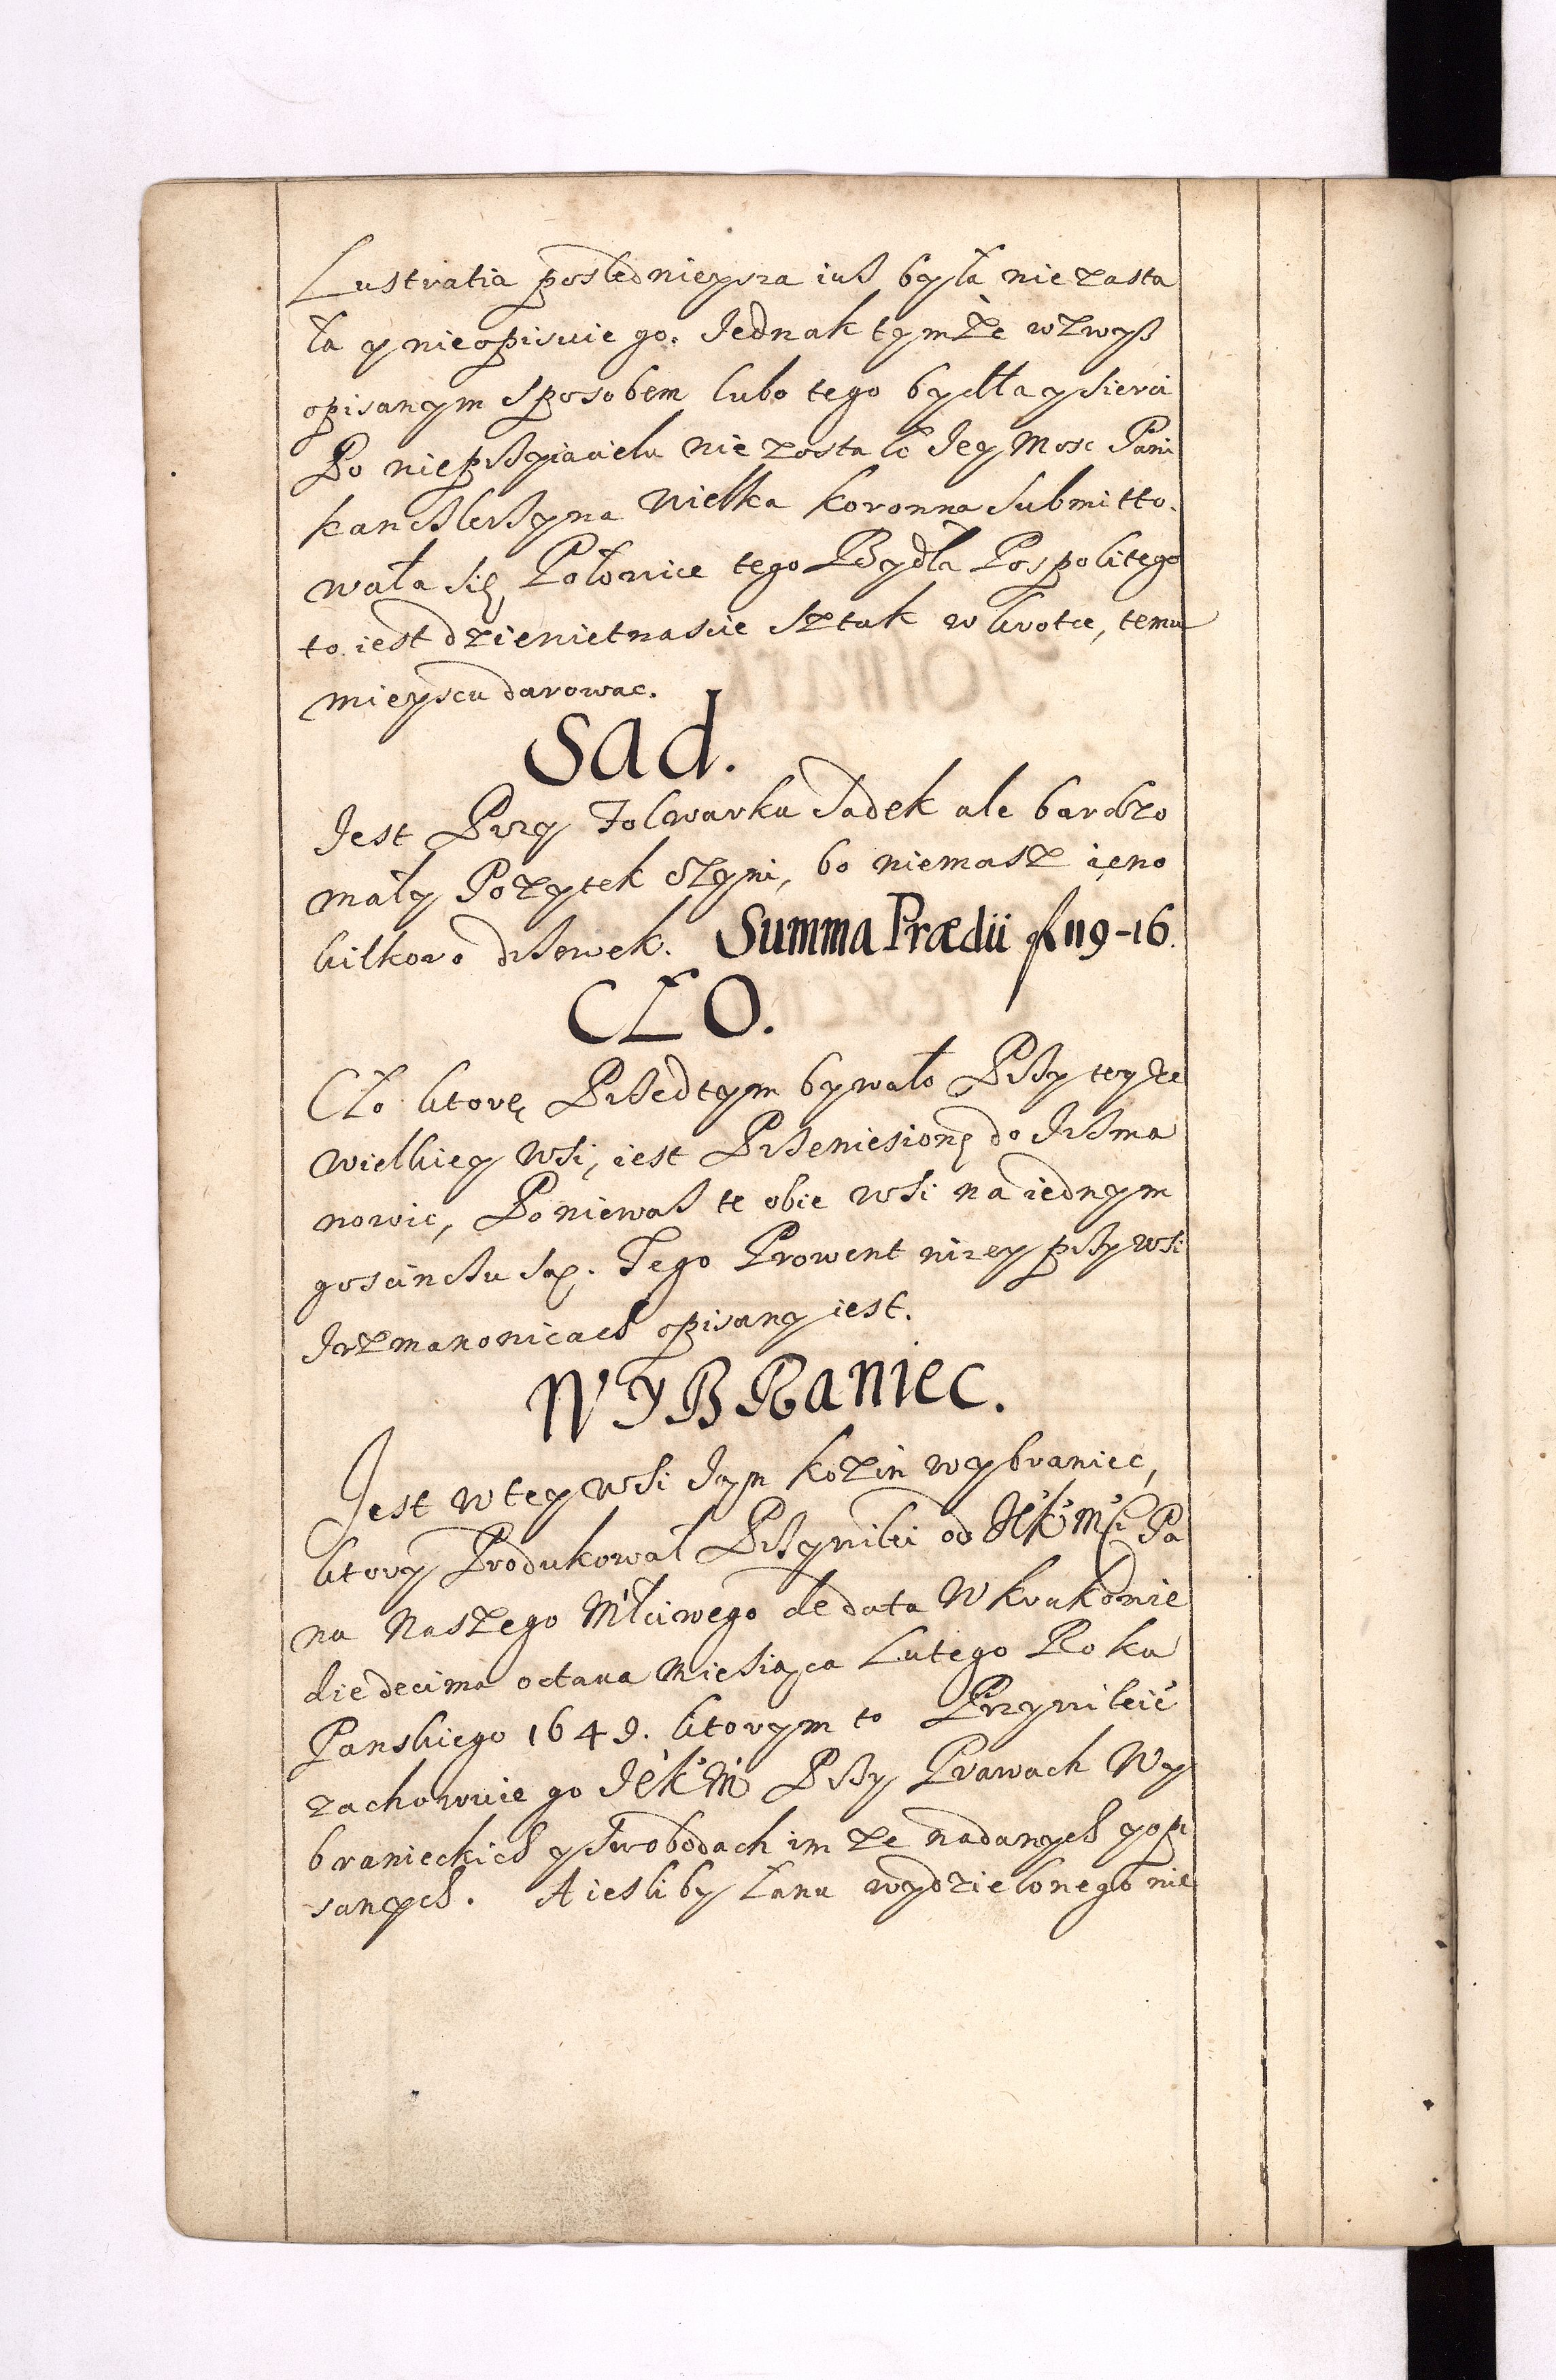 Lustratia posledniejsza iuß była nie zasta
ła y nieopisuie go. Jednak tymże wzwyß
opisanym sposobem lubo tego bydła y sierci
Po niepßyiacielu nie zostało Jey Mosc Pani
kancßlerßyna Wielka koronna submitto.
wała się Połowice tego Bydła Pospolitego
to iest dziewietnascie sztuk w krotce, temu
mieyscu darowac.
Sad.
Jest Przy Folwarku Sadek ale bardzo
mały Pożytek czyni, bo niemasz ieno
kilkoro drßewek. Summa Prædii fl 119-16.
CŁO.
Cło ktorę Przedtym bywało Pßy teyże
wielkiey wsi, iest Przeniesionę do Jrzma
nowic, Poniewaß te obie wsi na iednym
goscincßu są. Tego Prowent nizey pßy wsi
Jrzmanowicach opisany iest.
WYBRaniec.
Jest w tey wsi Jan Kozin wybraniec,
ktory Produkował Pßywilei od JéKMści Pa
na Naszego Młciwego de data w krakowie
die decima octaua Miesiąca Lutego Roku
Panskiego 1649. ktorym to Przywileie
zachowuie go JéKM Pßy Prawach Wy
branieckich y swobodach im ze nadanych y opi
sanych. A iesliby łanu wydzielonego nie